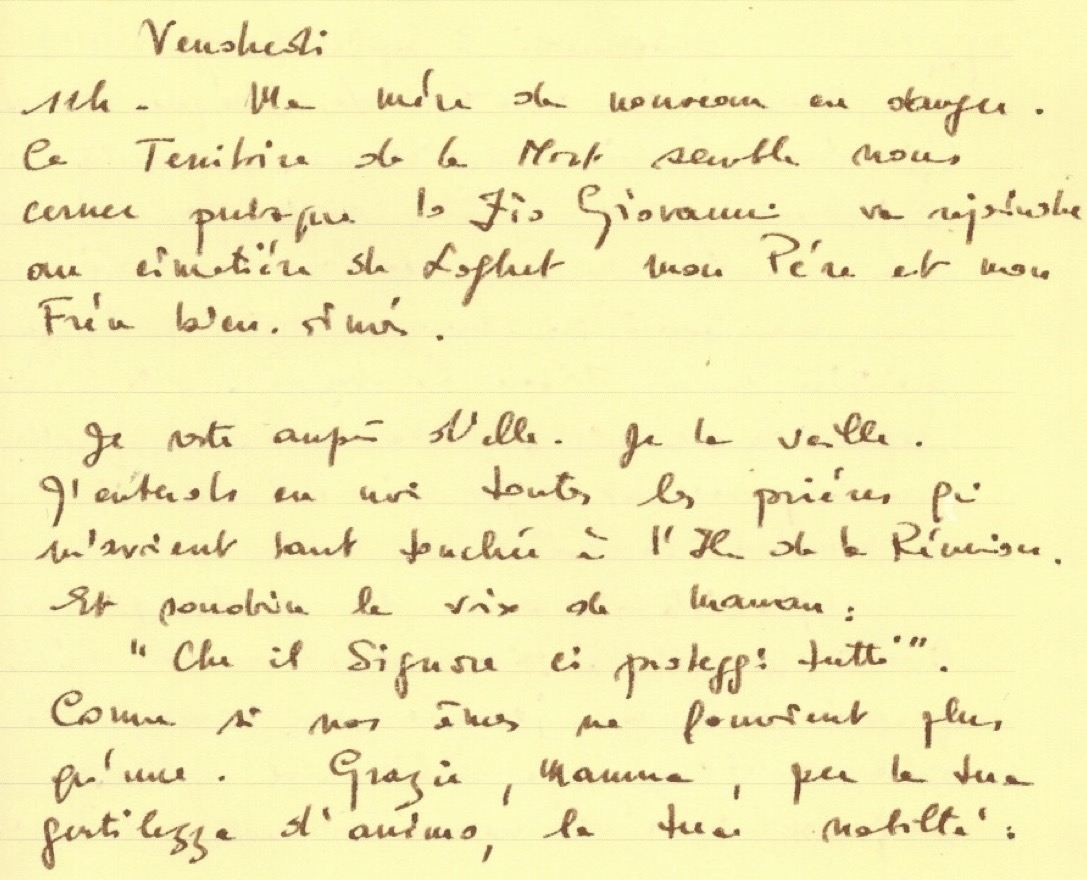 Vendredi
11h. Ma mère de nouveau en danger.
Ce Territoire de la Mort semble nous
cerner puisque lo Zio Giovanni va rejoindre
au cimetière de Laghet mon Père et mon
Frère bien-aimés.
Je reste auprès d'elle. Je la veille.
J'entends en moi toutes les prières qui
m'avaient tant touchée à l'Ile de la Réunion.
Et soudain la voix de maman :
"Che il Signore ci protegga tutti".
Comme si nos âmes ne formaient plus
qu'une. Grazie, Mamma, per la tua
gentilezza d'animo, la tua nobiltà :